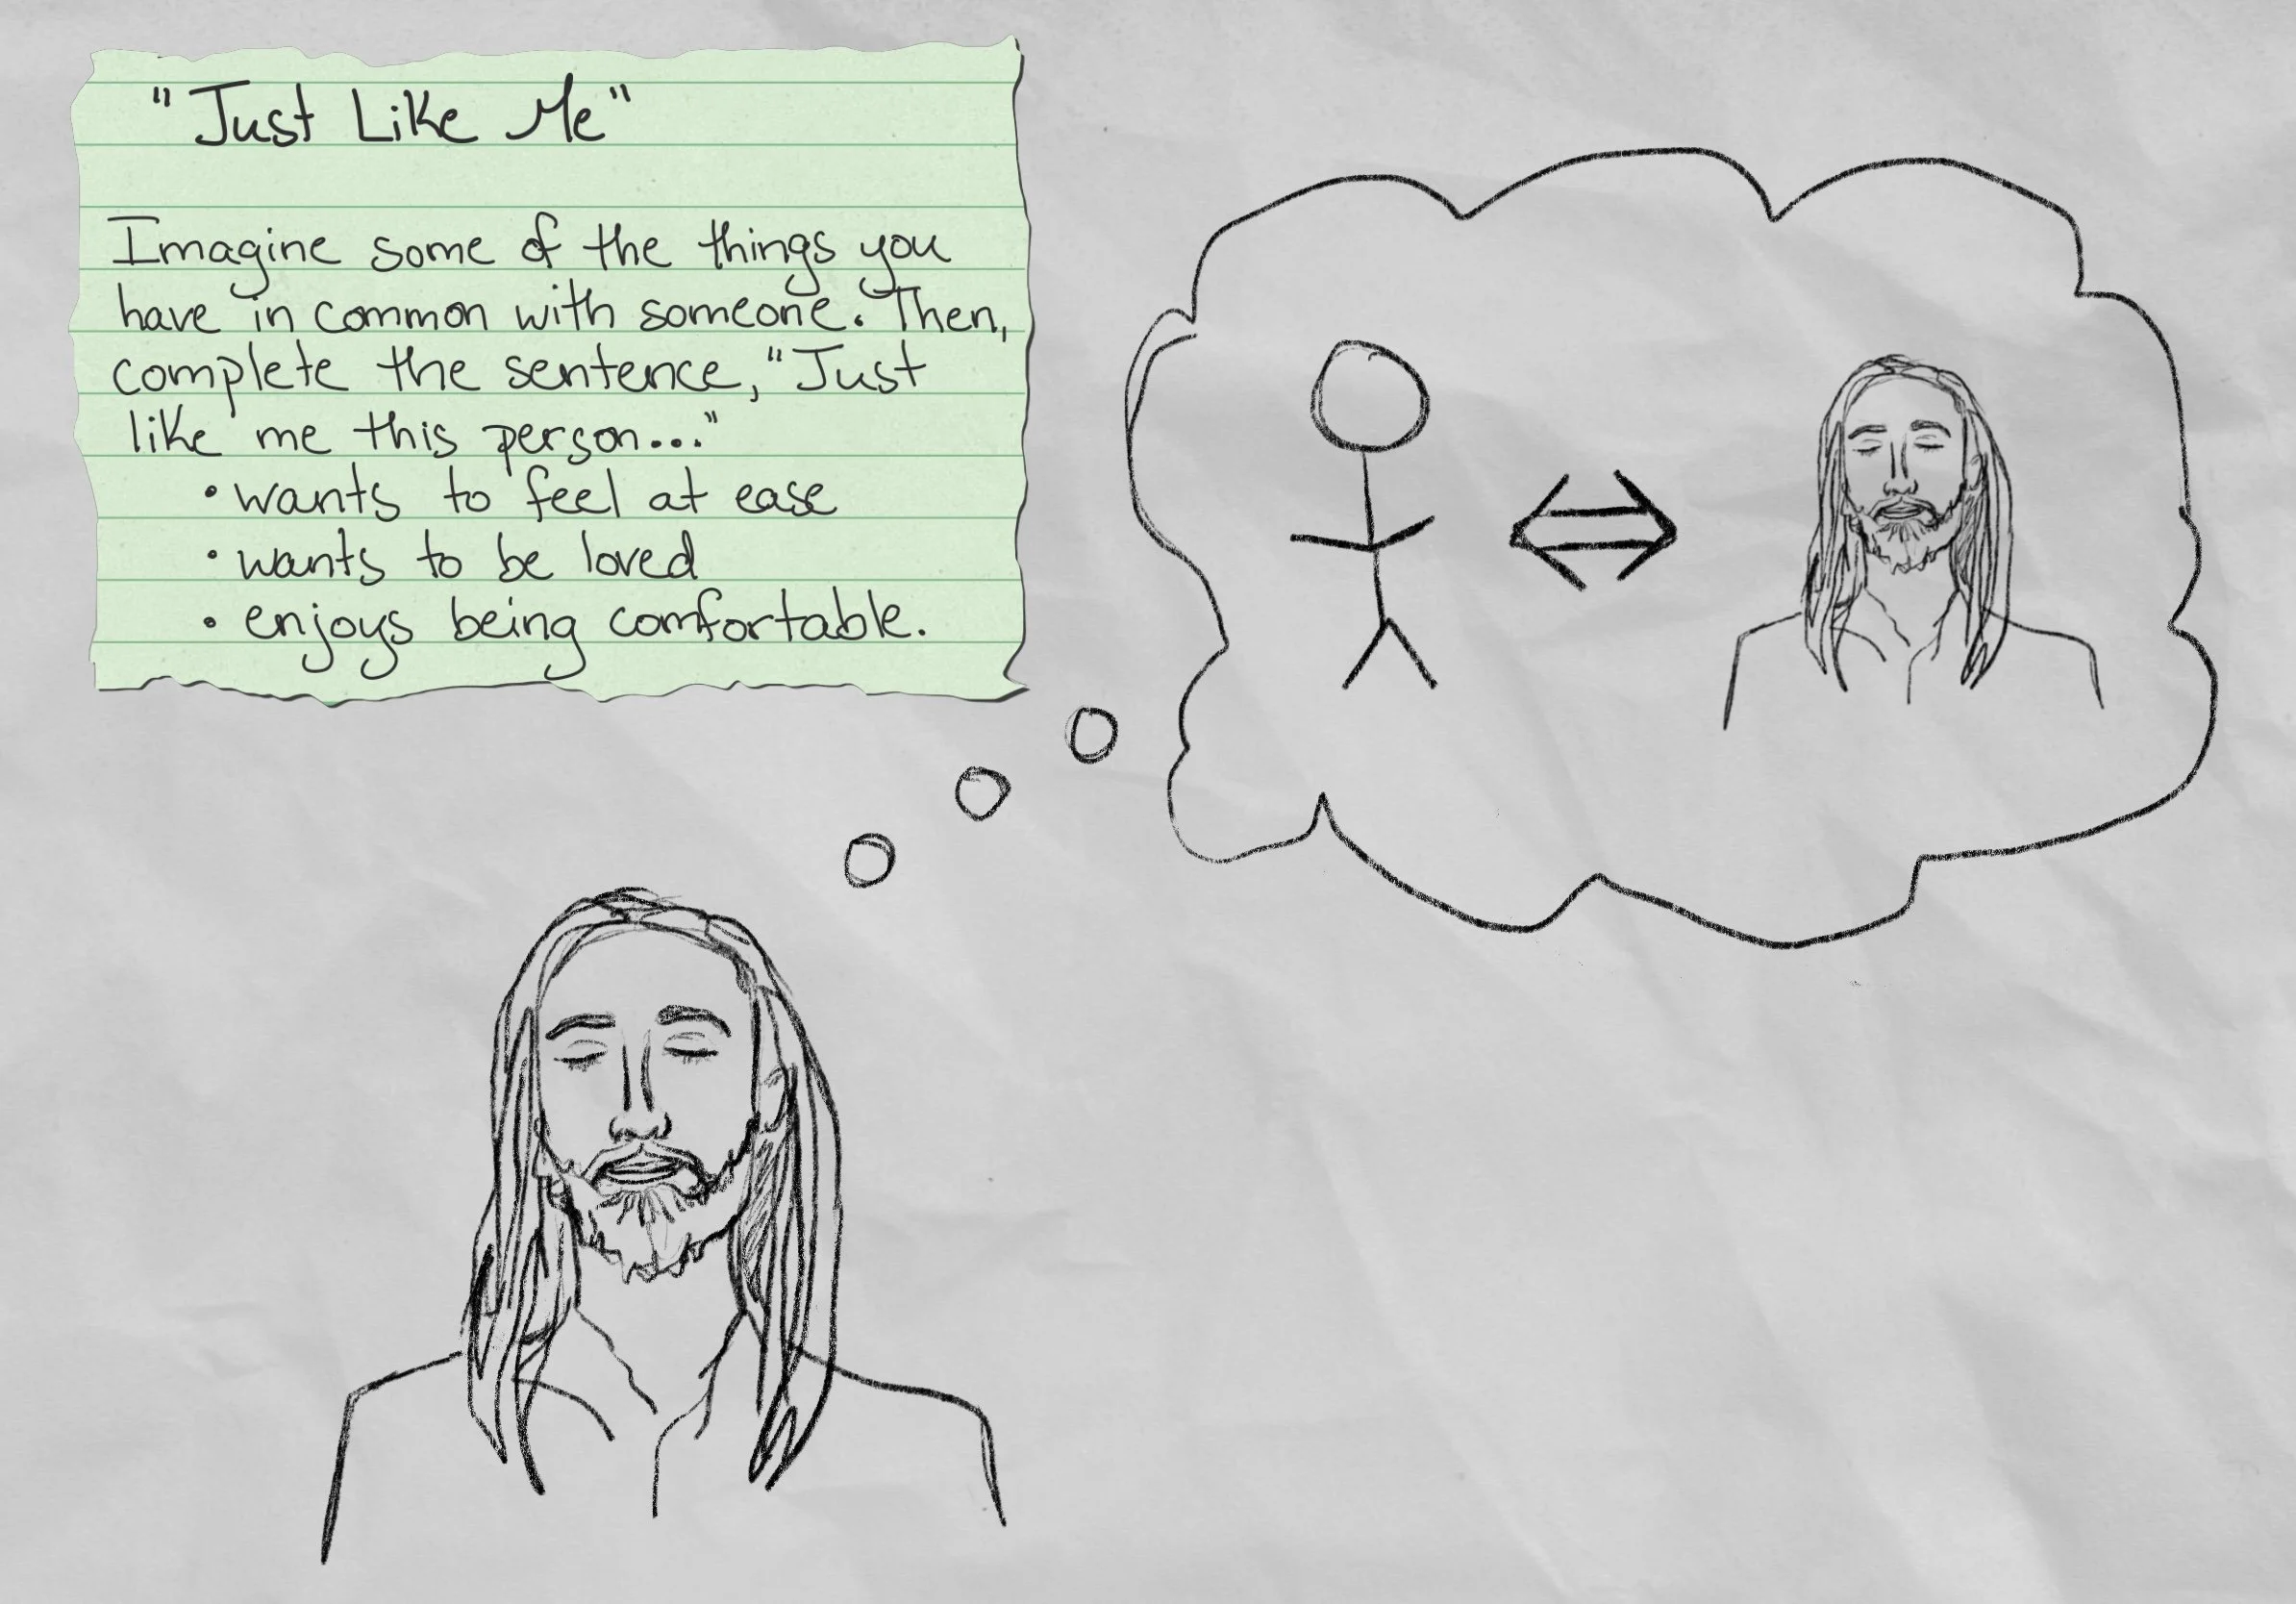 "Just Like Me"
Imagine some of the things you
have in common with someone. Then,
complete the sentence, "Just
like me this person..."
• wants to feel at ease
• wants to be loved
• enjoys being comfortable.